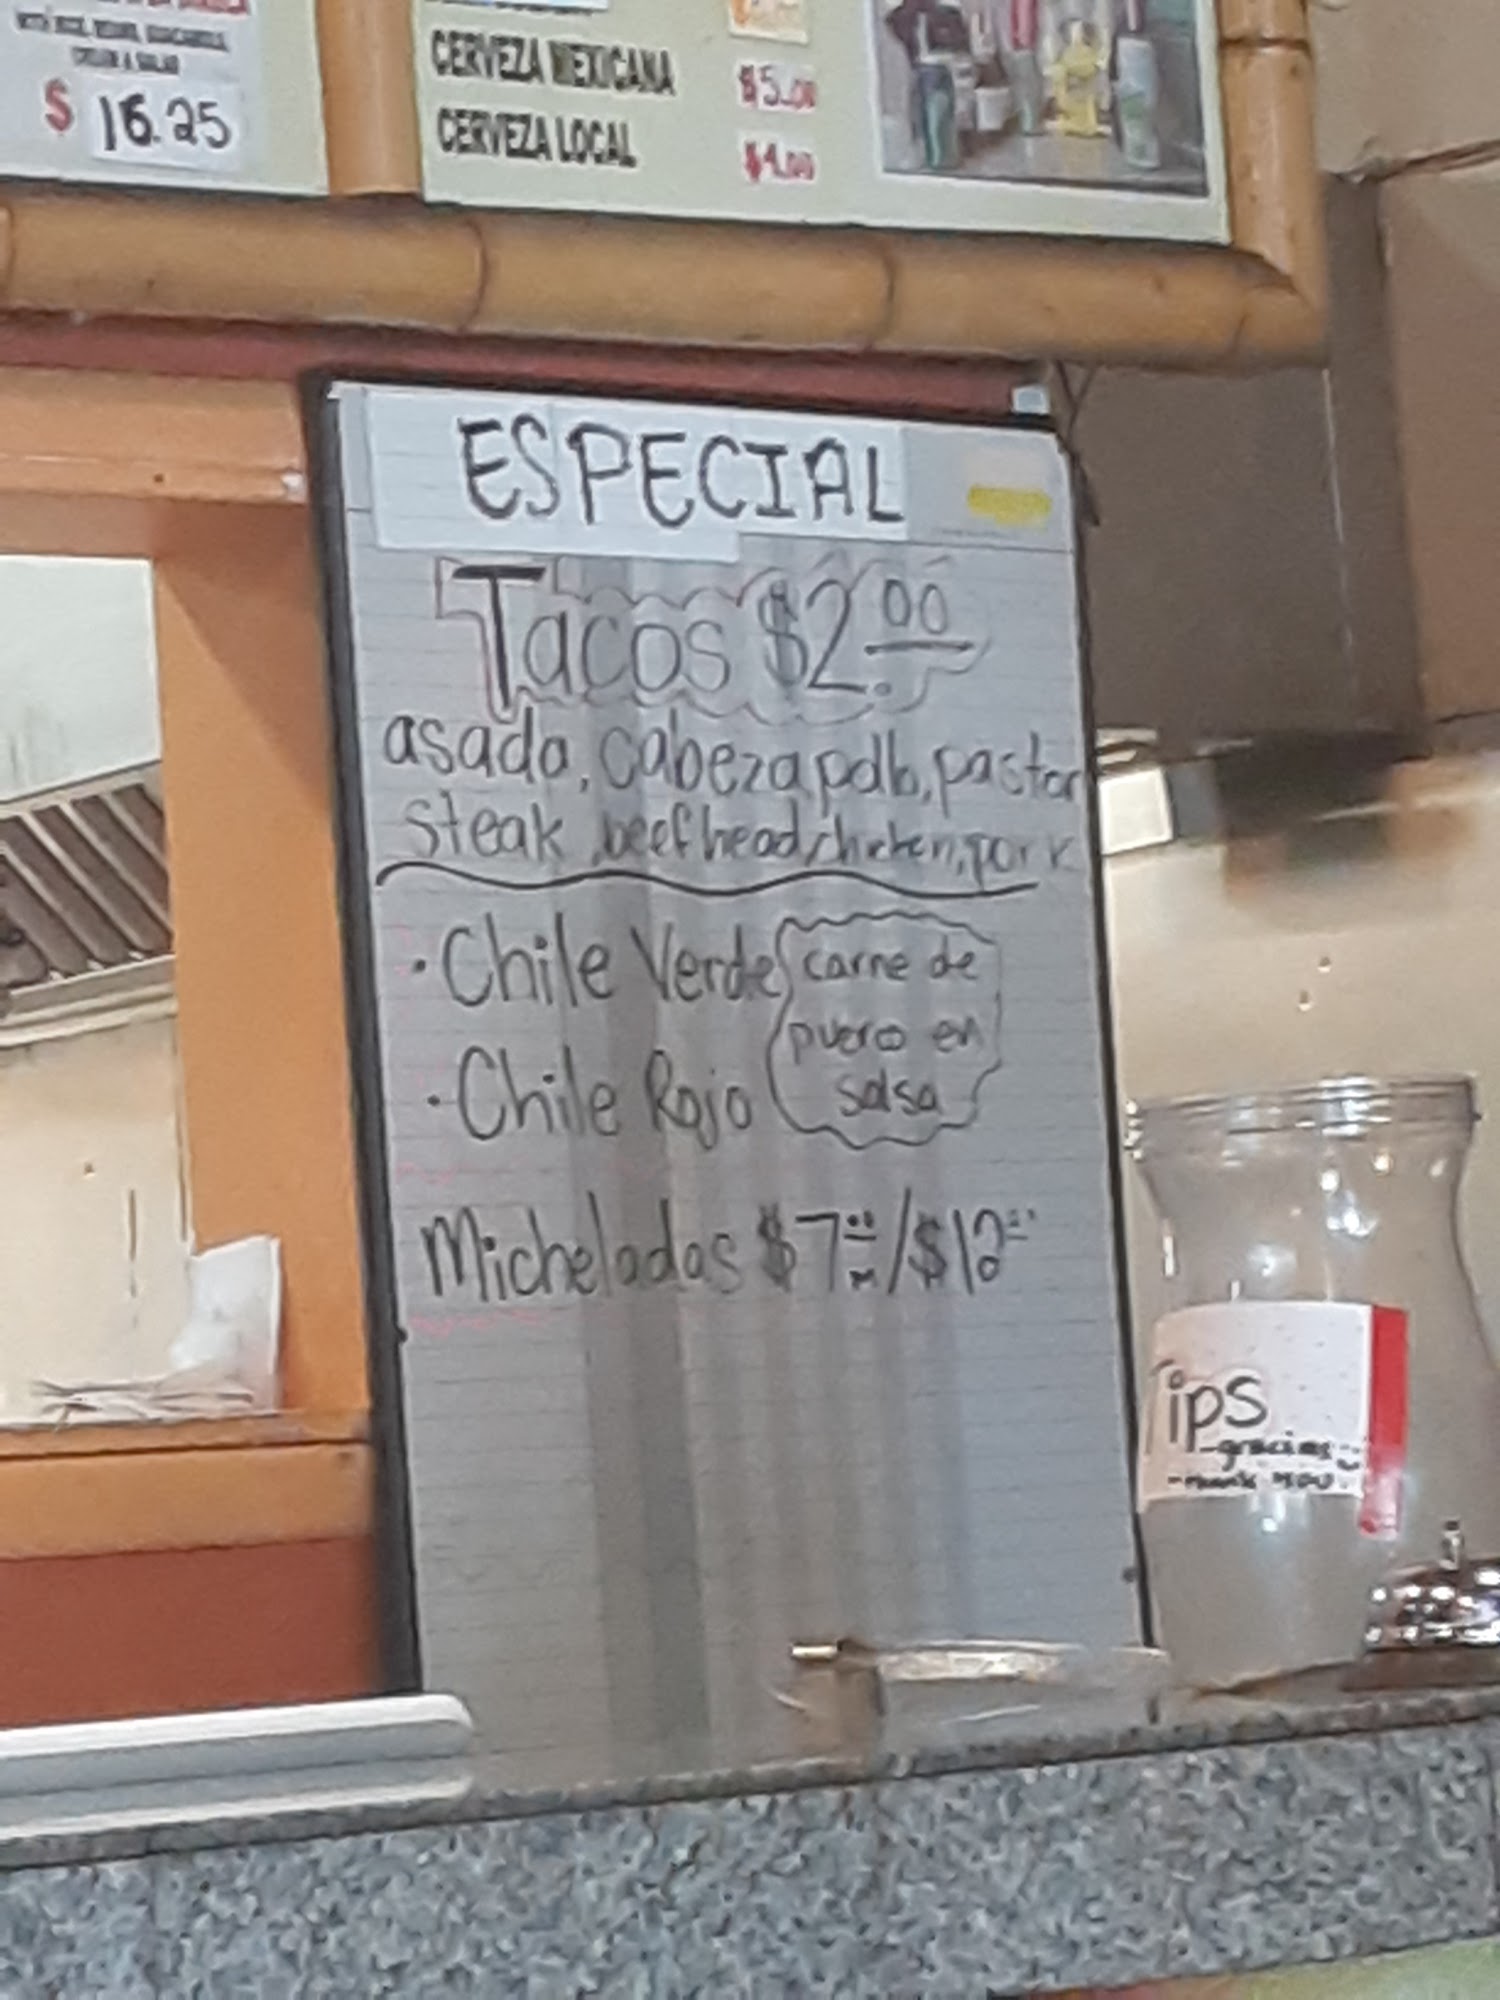 $ 16.25
CERVEZA MEXICANA $5.00
CERVEZA LOCAL $4.00
ESPECIAL
Tacos $2.00
asada, cabeza, pollo, pastor
steak, beef head, chicken, pork
• Chile Verde
• Chile Rojo
carne de
puerco en
salsa
Micheladas $7.00 / $12.00
Tips
- gracias
- thank you